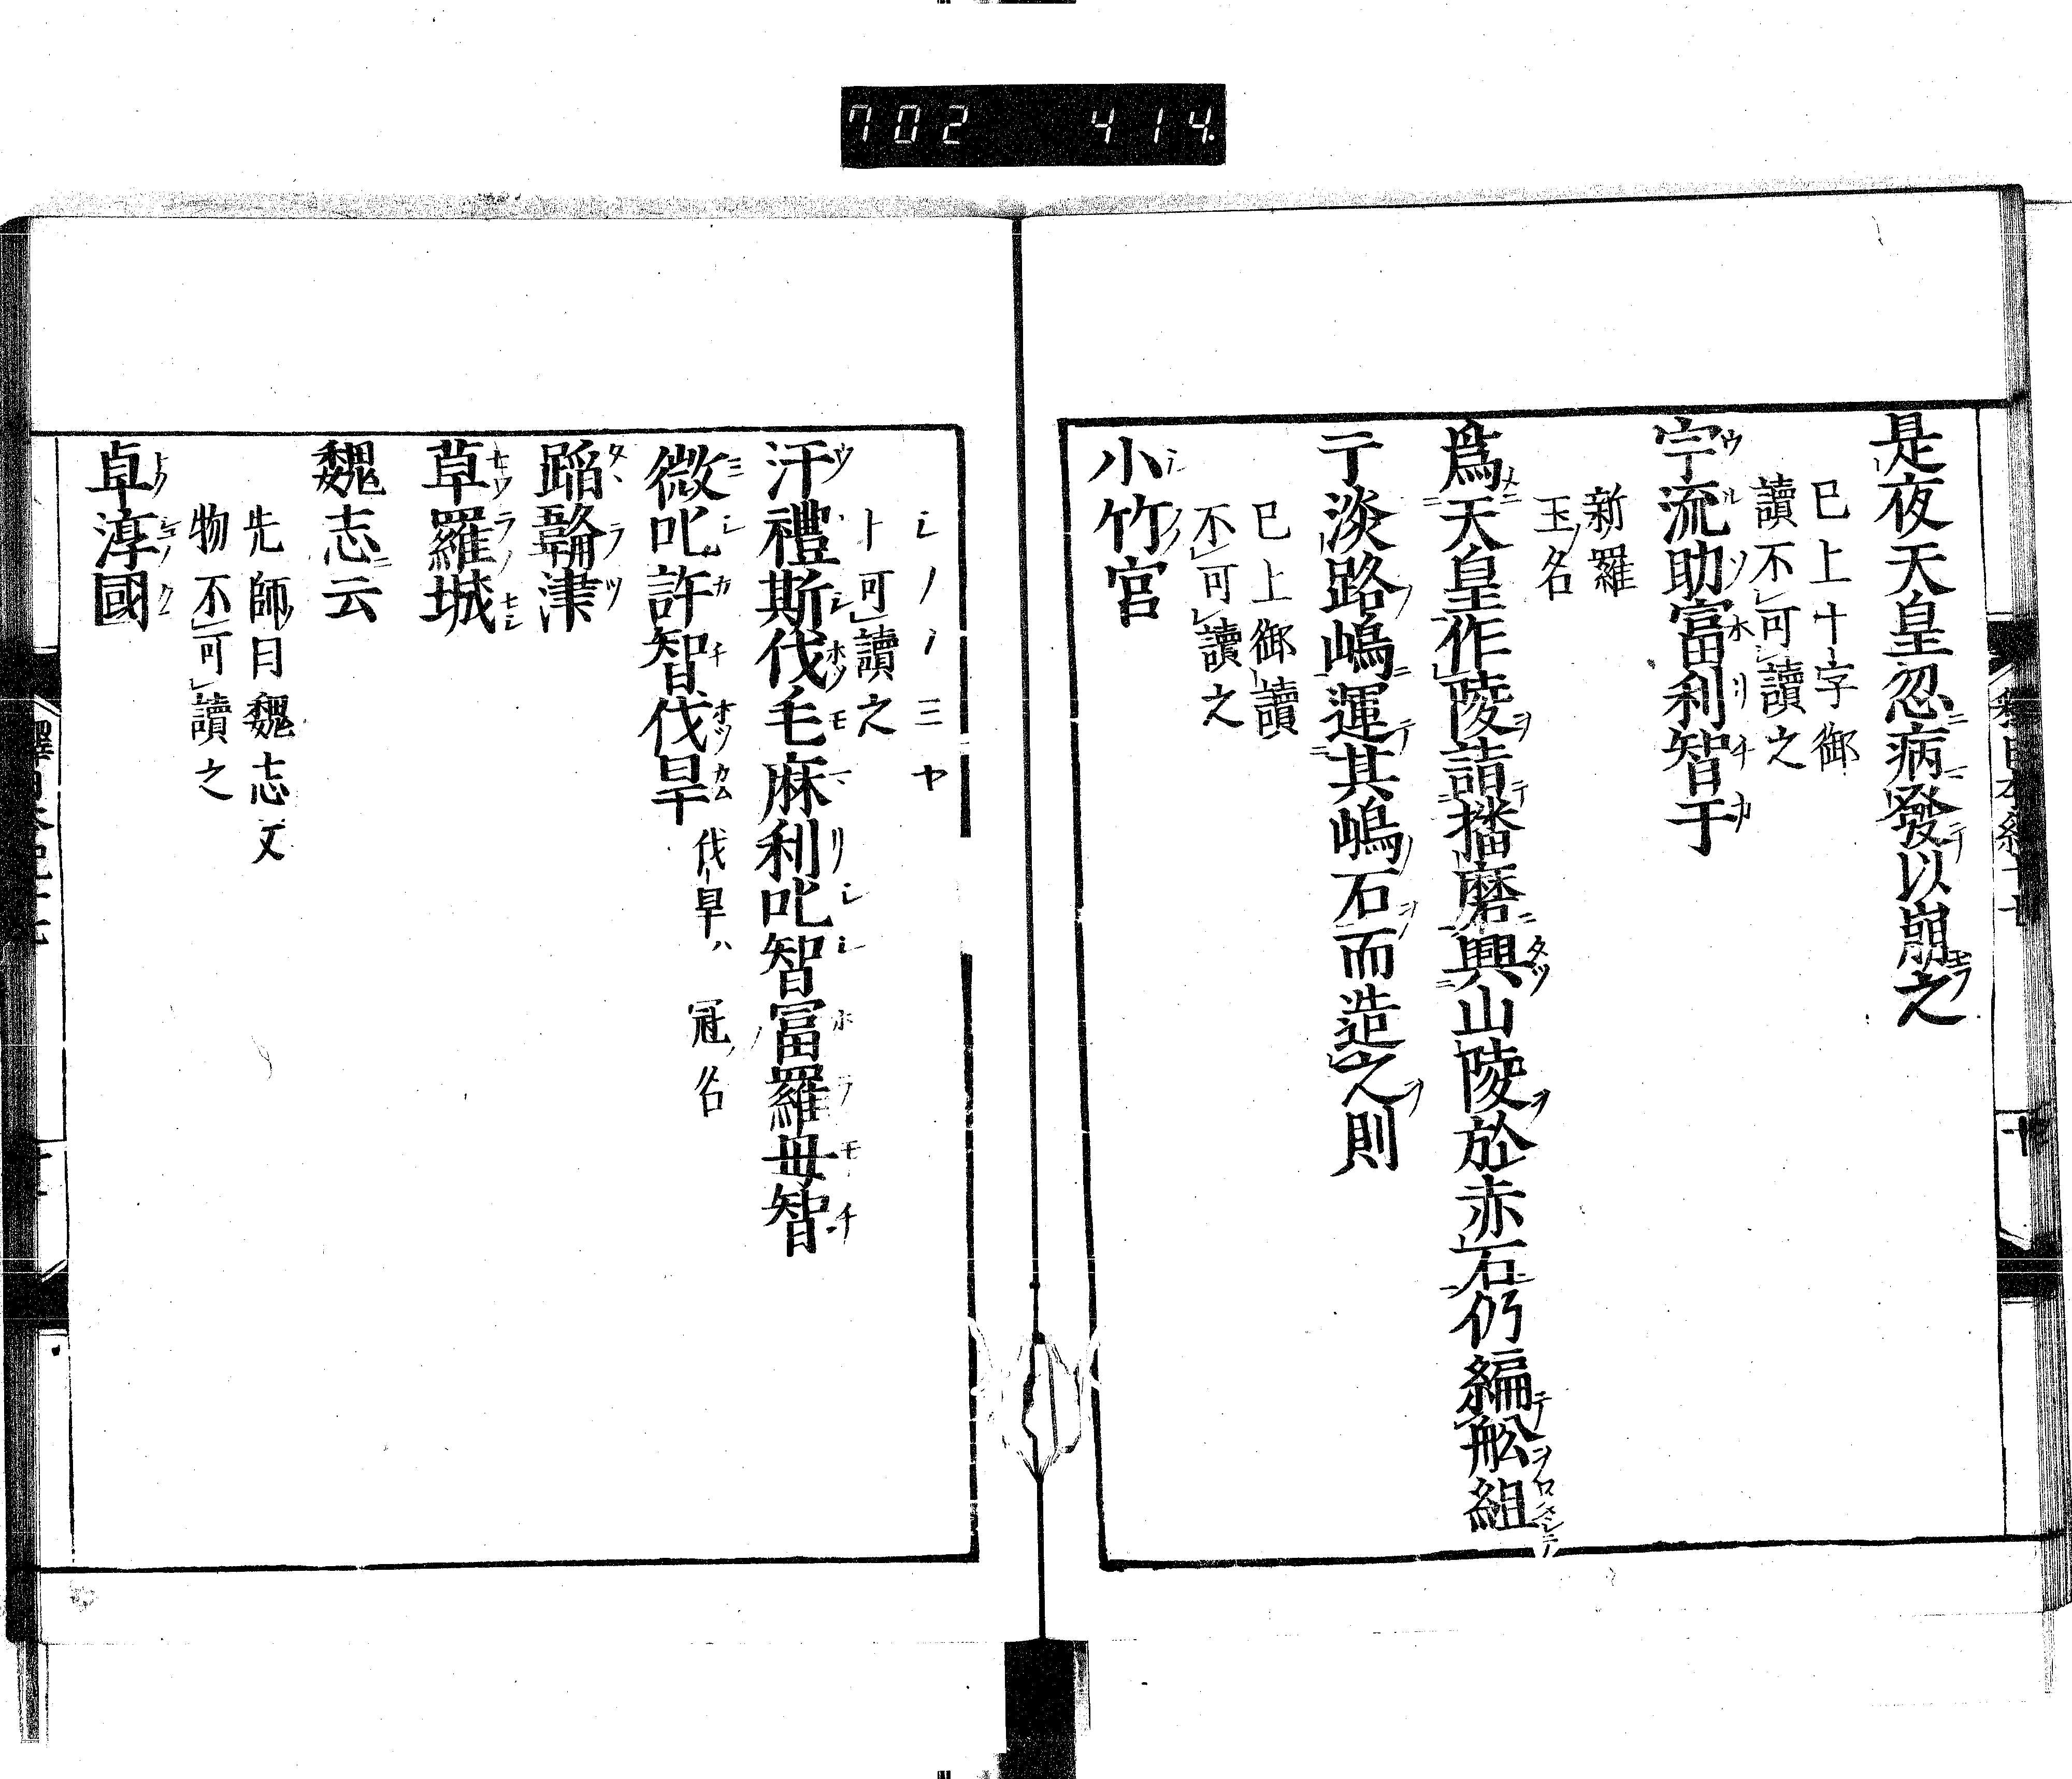 702 414
是夜天皇忽病發以崩之
已上十字御
讀不可讀之
宇流助富利智于
新羅
王名
爲天皇作陵詣播磨興山陵於赤石仍編舩組
于淡路嶋運其嶋石而造之則
已上御讀
不可讀之
小竹宮
シノノミヤ
ト可讀之
汙禮斯伐毛麻利叱智富羅毋智
微叱許智伐旱 伐旱ハ冠ノ名
蹈鞴津
草羅城
魏志云
先師曰魏志文
物不可讀之
卓淳國